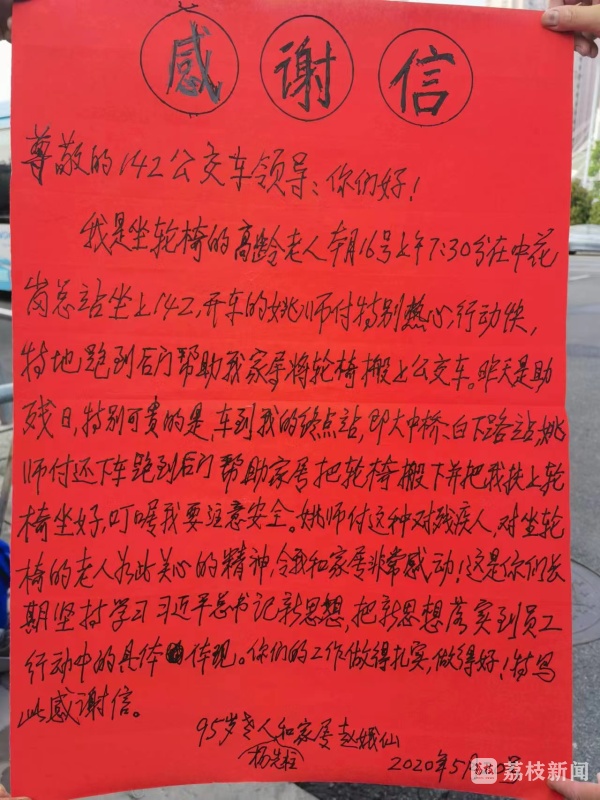 感谢信
尊敬的142公交车领导:你们好!
我是坐轮椅的高龄老人本月16号上午7:30分在中花
岗总站坐上142,开车的姚师付特别热心,行动快,
特地跑到后门帮助我家属将轮椅搬上公交车。昨天是助
残日,特别可贵的是,车到我的终点站,即大中桥、白下路站,姚
师付还下车跑到后门帮助家属把轮椅搬下并把我扶上轮
椅坐好,叮嘱我要注意安全。姚师付这种对残疾人,对坐轮
椅的老人如此关心的精神,令我和家属非常感动!这是你们长
期坚持学习习近平总书记新思想,把新思想落实到员工
行动中的具体体现。你们的工作做得扎实,做得好!特写
此感谢信。
95岁老人和家属赵娥仙
杨先柱
2020年5月
荔枝 荔枝新闻